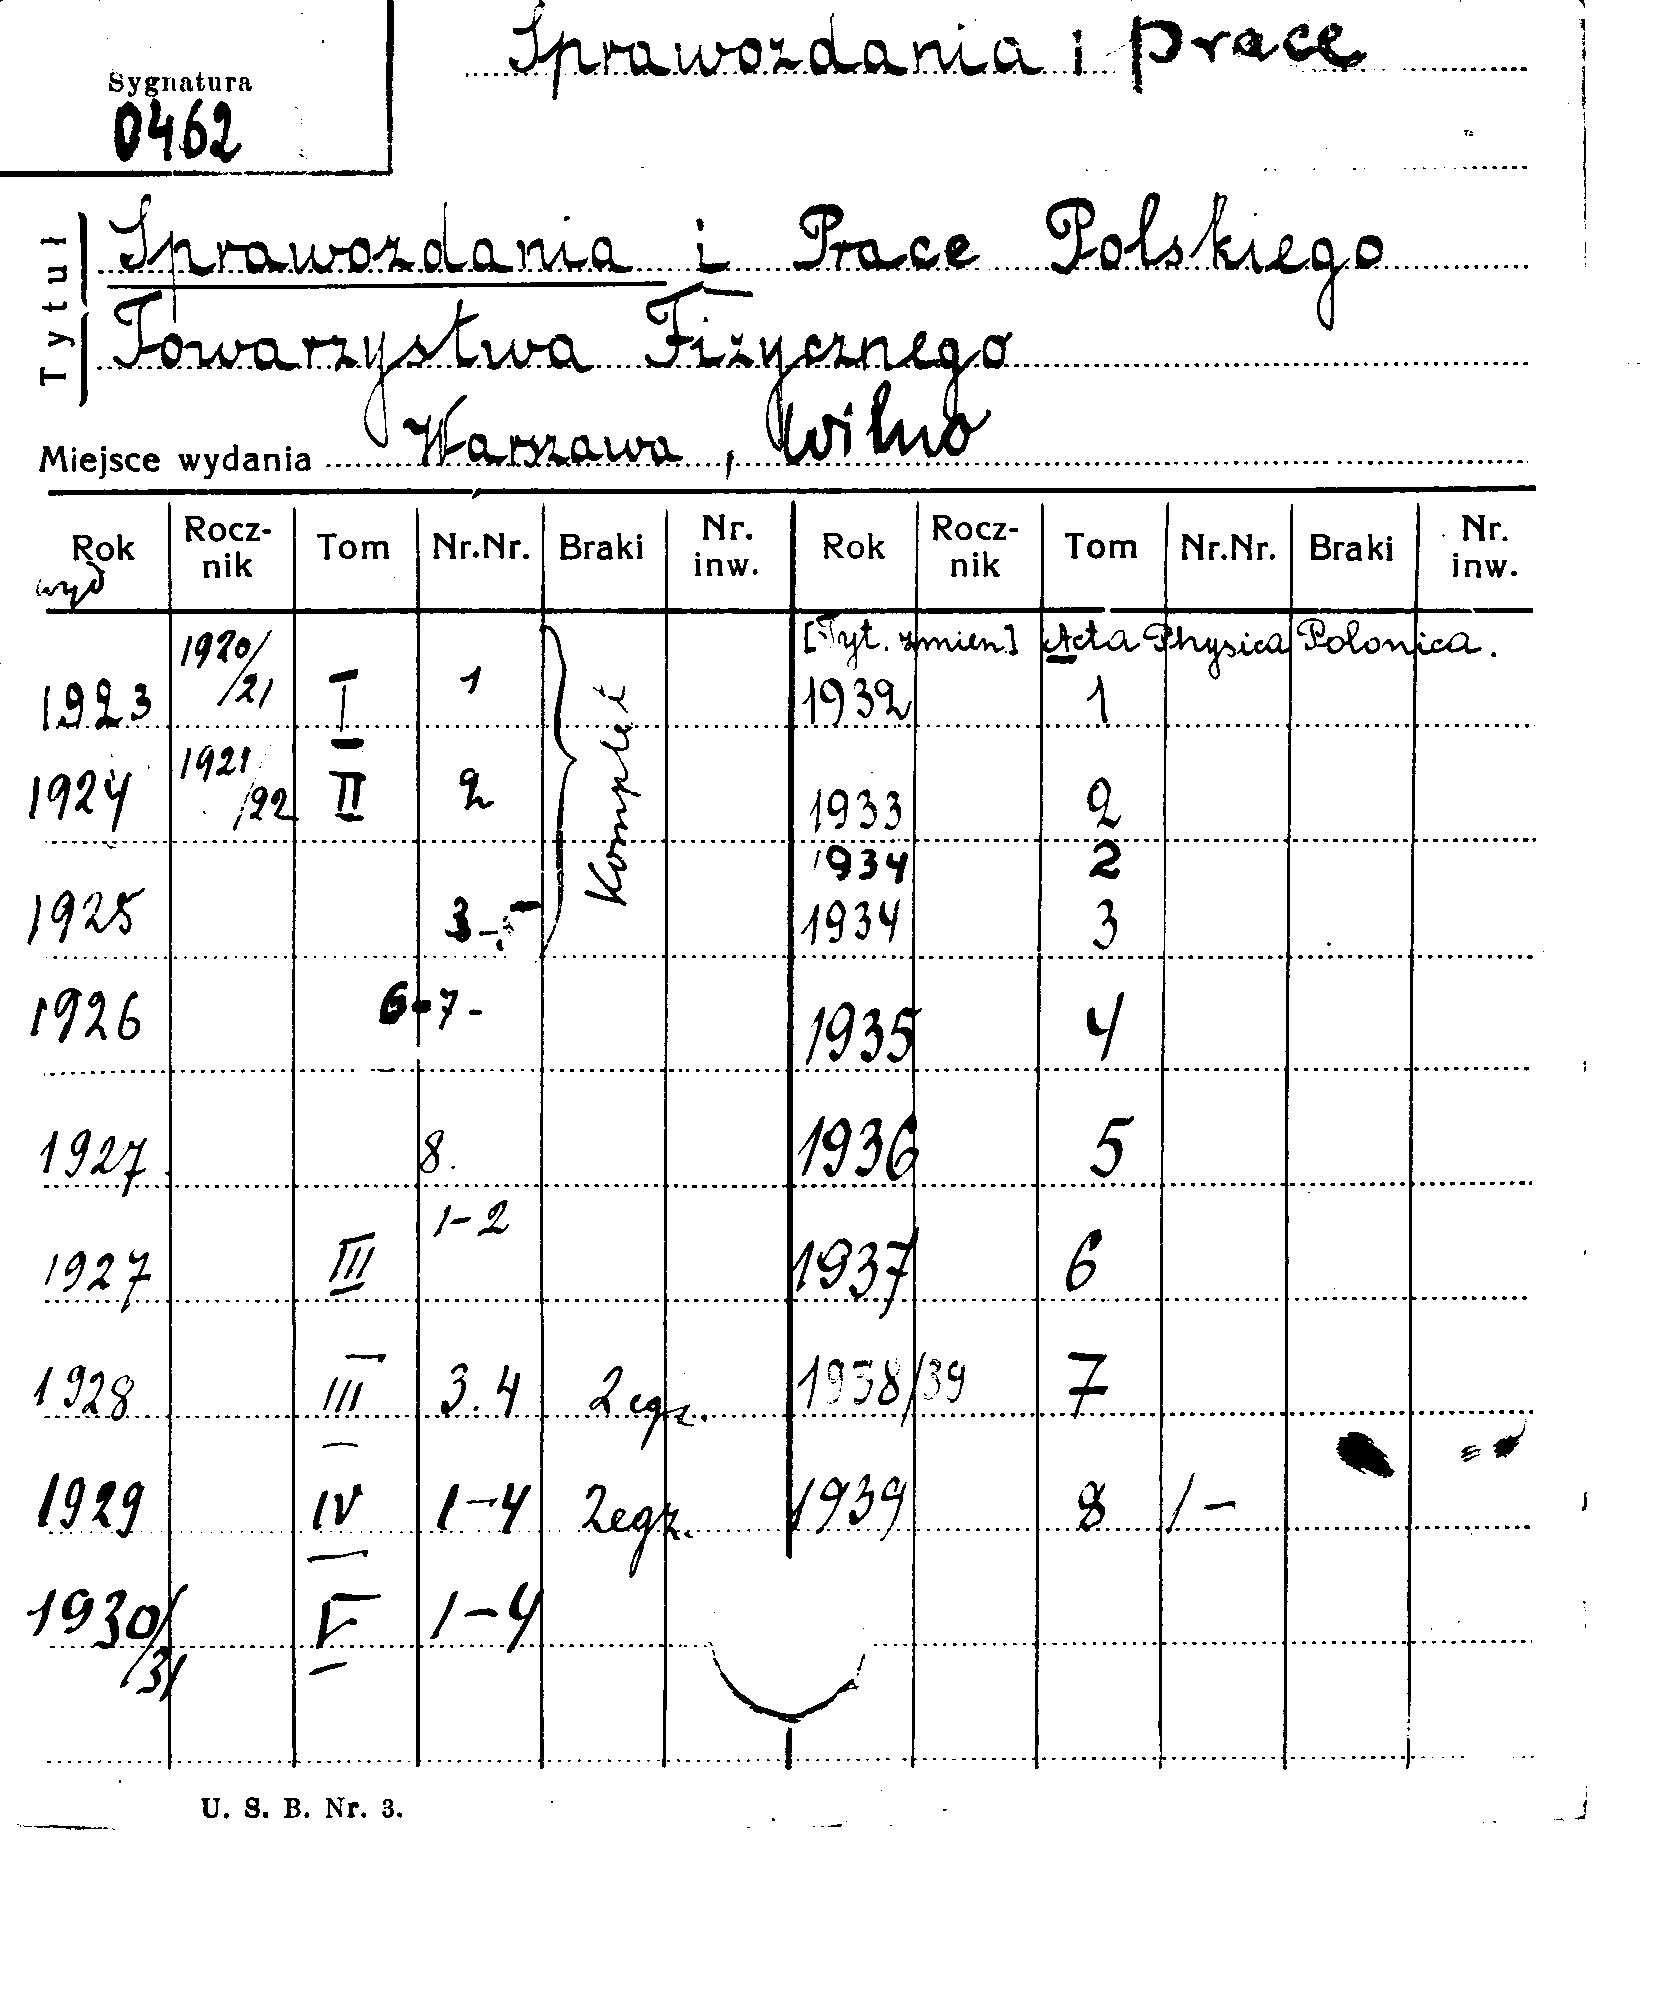 Sprawozdania i prace
Sygnatura
0462
Tytuł
Sprawozdania i Prace Polskiego
Towarzystwa Fizycznego
Miejsce wydania Warszawa, Wilno
Rok wyd Rocznik Tom Nr.Nr. Braki Nr. inw. Rok Rocznik Tom Nr.Nr. Braki Nr. inw.
[Tyt. zmien.] Acta Physica Polonica.
1923 1920/21 I 1 Komplet 1932 1
1924 1921/22 II 2 1933 2
1934 2
1925 3-5 1934 3
1926 6-7- 1935 4
1927 8. 1936 5
1927 III 1-2 1937 6
1928 III 3.4 2 egz. 1938/39 7
1929 IV 1-4 2 egz. 1939 8 1-
1930/31 V 1-4
U. S. B. Nr. 3.